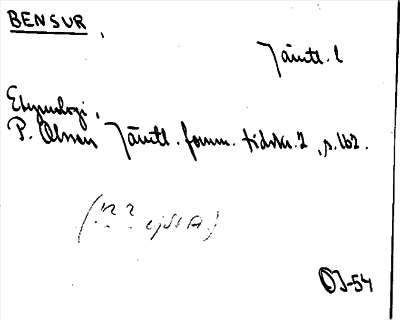 BENSUR,
Jämtl. l
Etymologi,
P. Olsson Jämtl. fornm. tidskr. 2, s. 162.
(?? ej SLA)
OJ-54